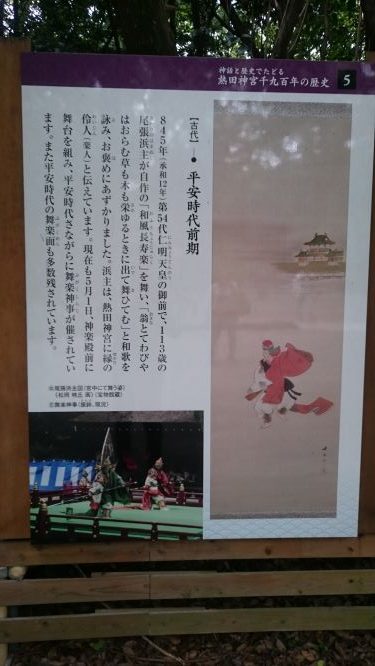 神話と歴史でたどる
熱田神宮千九百年の歴史 5
【古代】―● 平安時代前期
845年(承和12年)第54代仁明天皇の御前で、113歳の
尾張浜主が自作の「和風長寿楽」を舞い、「翁とてわびや
はおらむ草も木も栄ゆるときに出て舞ひてむ」と和歌を
詠み、お褒めにあずかりました。浜主は、熱田神宮に縁の
伶人(楽人)と伝えています。現在も5月1日、神楽殿前に
舞台を組み、平安時代さながらに舞楽神事が催されてい
ます。また平安時代の舞楽面も多数残されています。
尾張浜主図(宮中にて舞う姿)
舞楽神事(振鉾、現況)